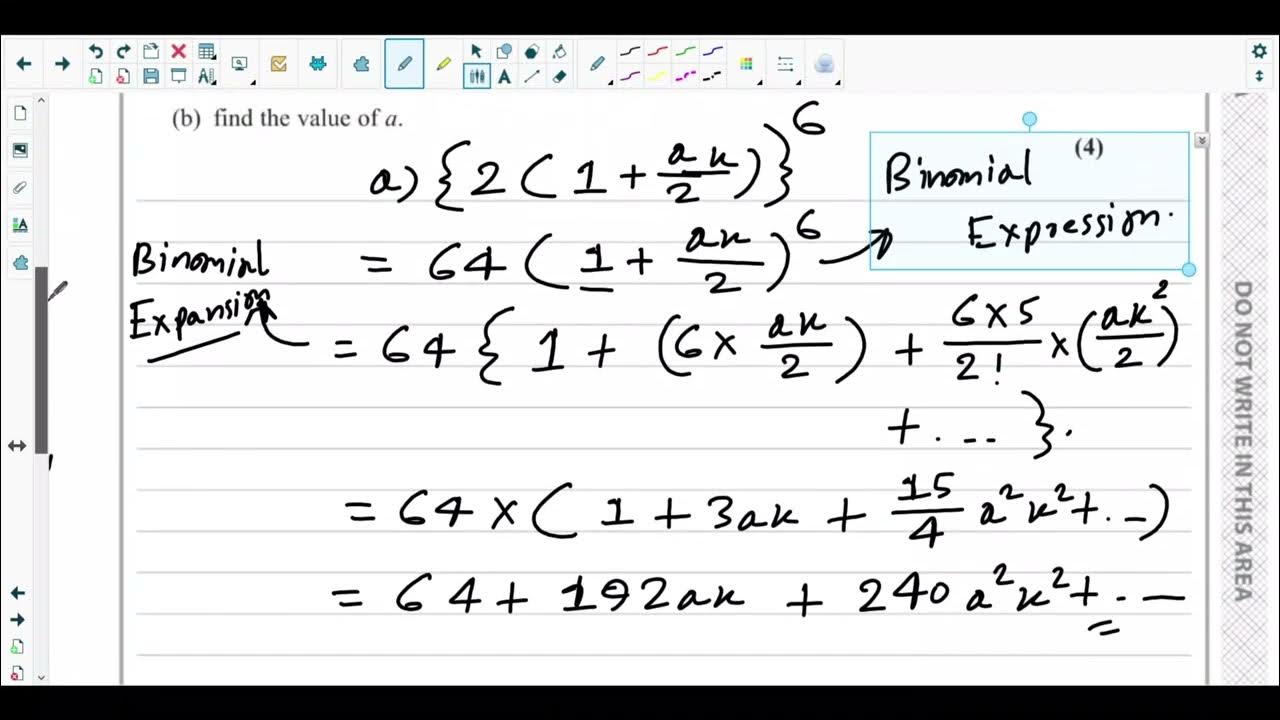 (b) find the value of a.
(4)
a) {2(1 + ax/2)}^6
= 64(1 + ax/2)^6
Binomial
Expression.
Binomial
Expansion
= 64{1 + (6 × ax/2) + (6×5)/2! × (ax^2/2)
+ . ... }.
= 64 × (1 + 3ax + 15/4 a^2x^2 + ...)
= 64 + 192ax + 240a^2x^2 + ...
DO NOT WRITE IN THIS AREA